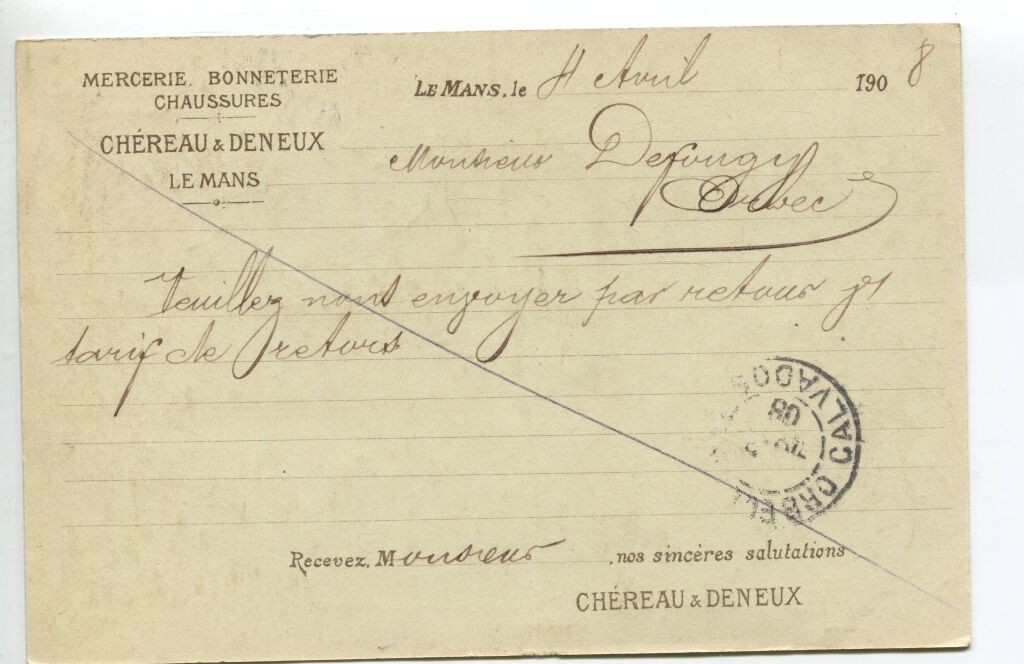 MERCERIE, BONNETERIE
CHAUSSURES
CHÉREAU & DENEUX
LE MANS
LE MANS, le 4 Avril 1908
Monsieur Defougy
Orbec
Veuillez nous envoyer par retour
tarif de retors
CALVADOS
08
ORBEC
Recevez, Monsieur, nos sincères salutations
CHÉREAU & DENEUX